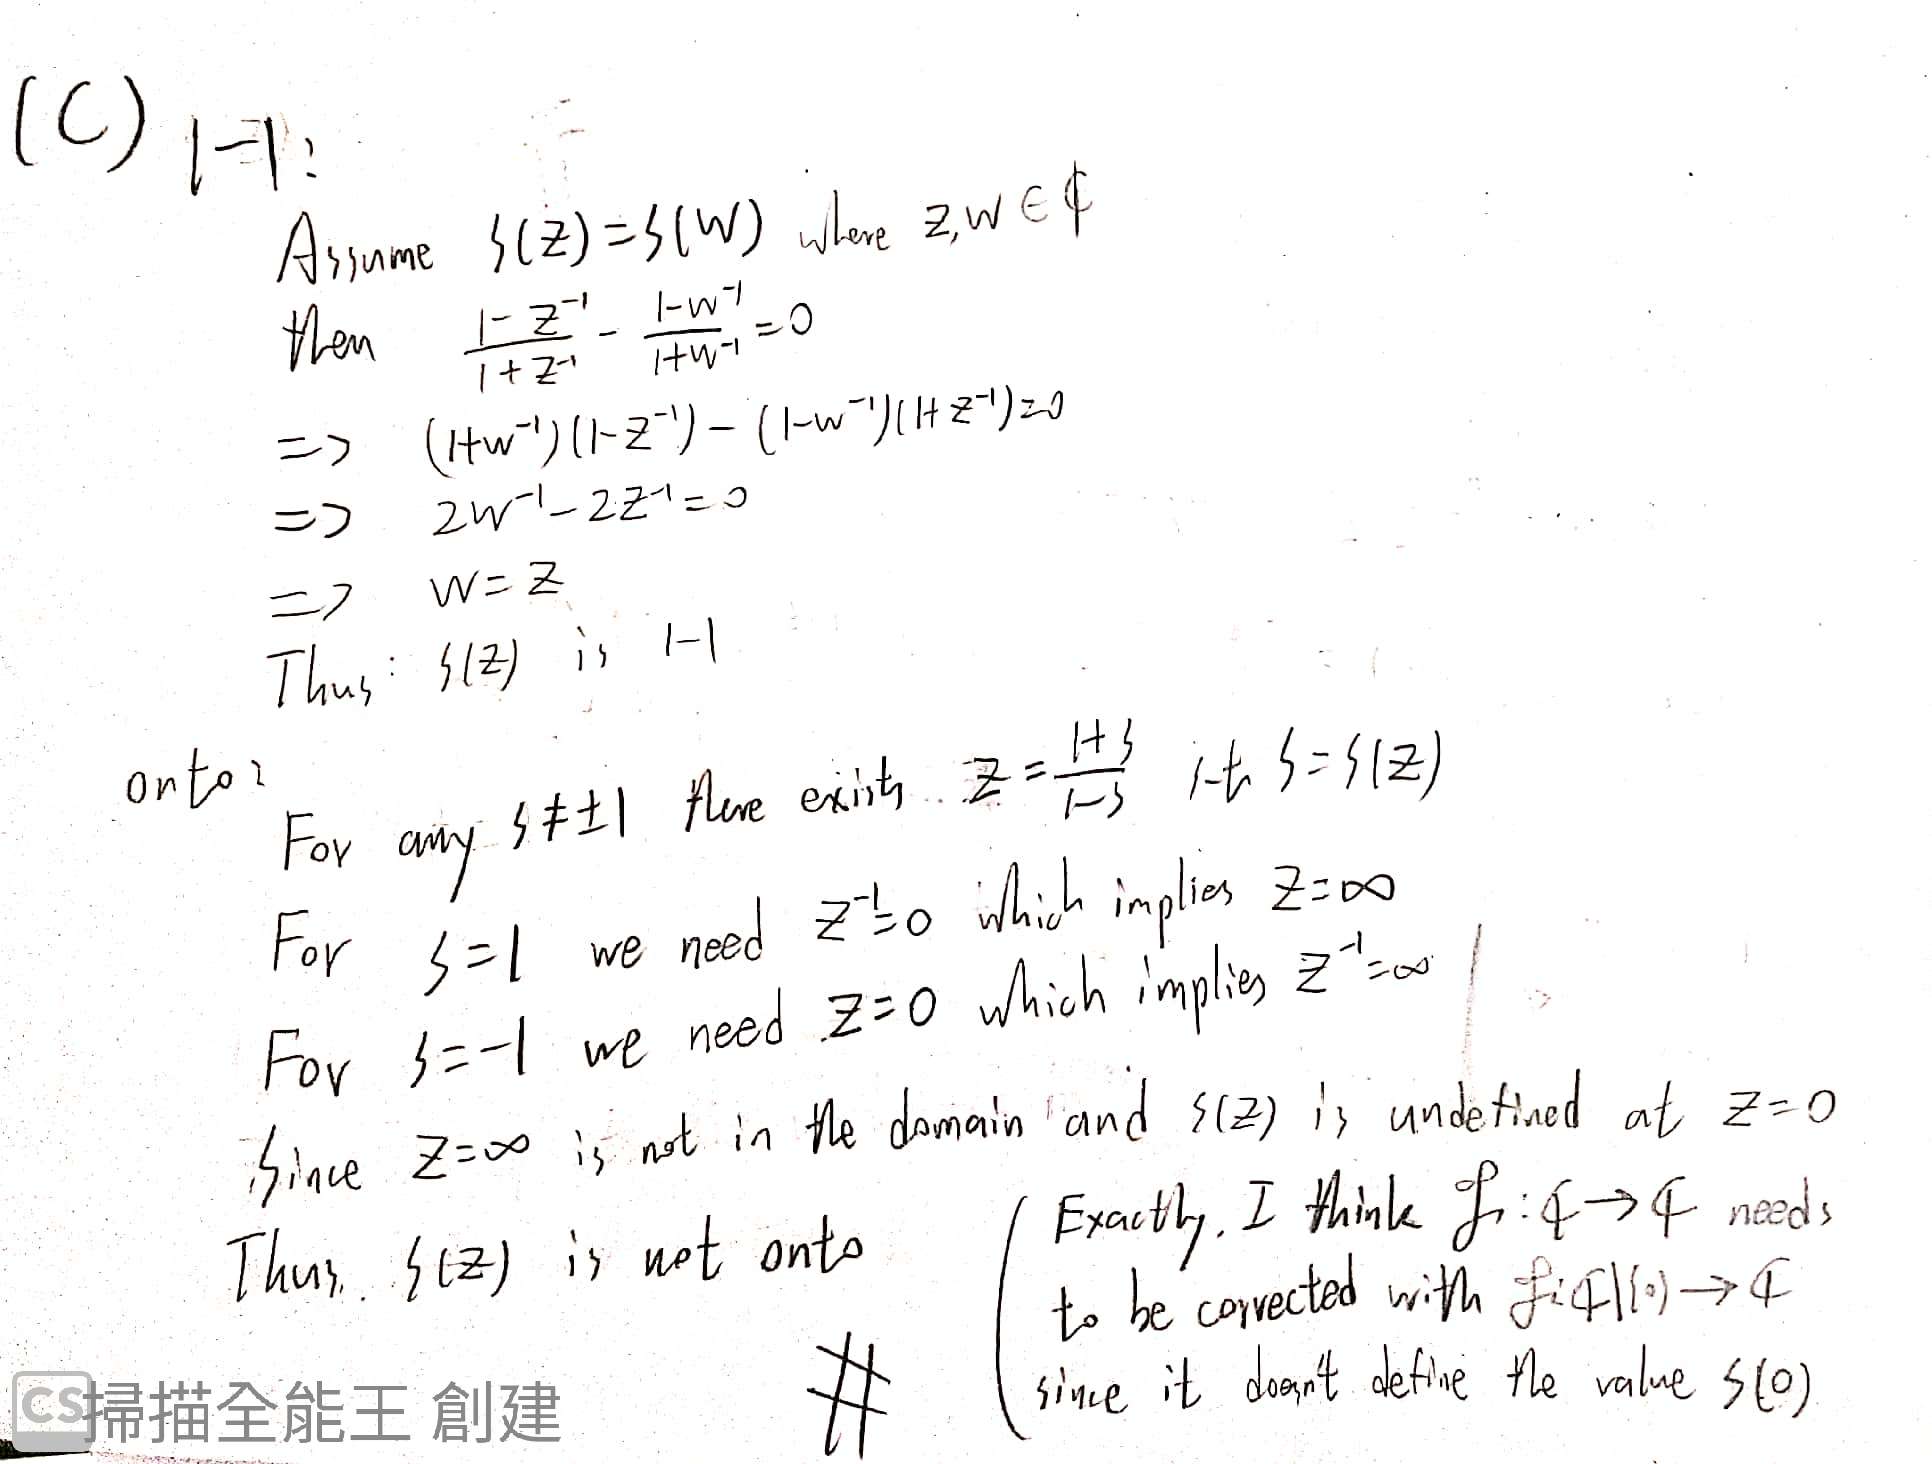 (C) 1-1:
Assume s(z)=s(w) where z,w∈¢
then \frac{1-z^{-1}}{1+z^{-1}} - \frac{1-w^{-1}}{1+w^{-1}} =0
=> (1+w^{-1})(1-z^{-1}) - (1-w^{-1})(1+z^{-1})=0
=> 2w^{-1}-2z^{-1}=0
=> w=z
Thus: s(z) is 1-1
onto:
For any s≠±1 there exists z=\frac{1+s}{1-s} s-t s=s(z)
For s=1 we need z^{-1}=0 which implies z=∞
For s=-1 we need z=0 which implies z^{-1}=∞
Since z=∞ is not in the domain and s(z) is undefined at z=0
Thus. s(z) is not onto
(Exactly, I think f:¢→¢ needs
to be corrected with f:¢\{0}→¢
since it doesn't define the value s(0)
#
CS掃描全能王 創建